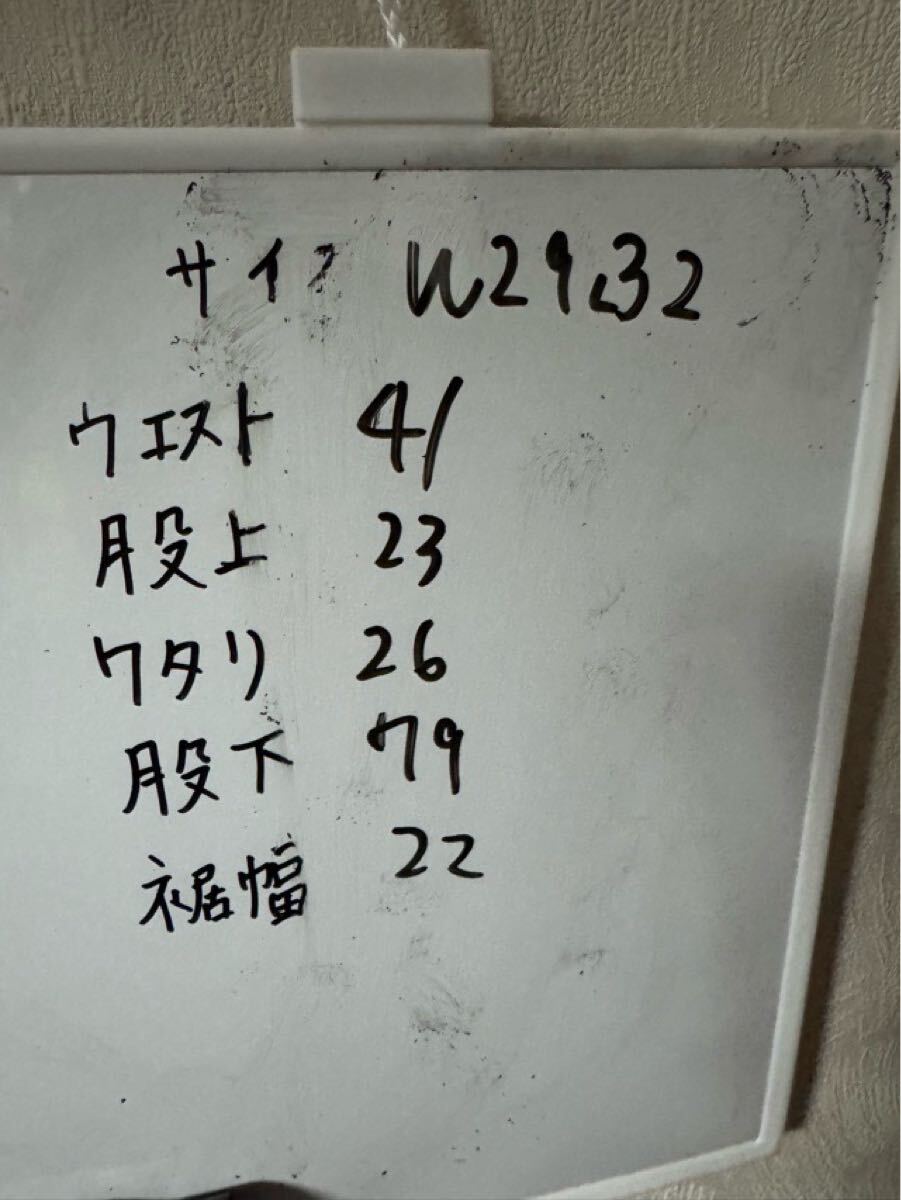 サイズ W29L32
ウエスト 41
股上 23
ワタリ 26
股下 79
裾幅 22